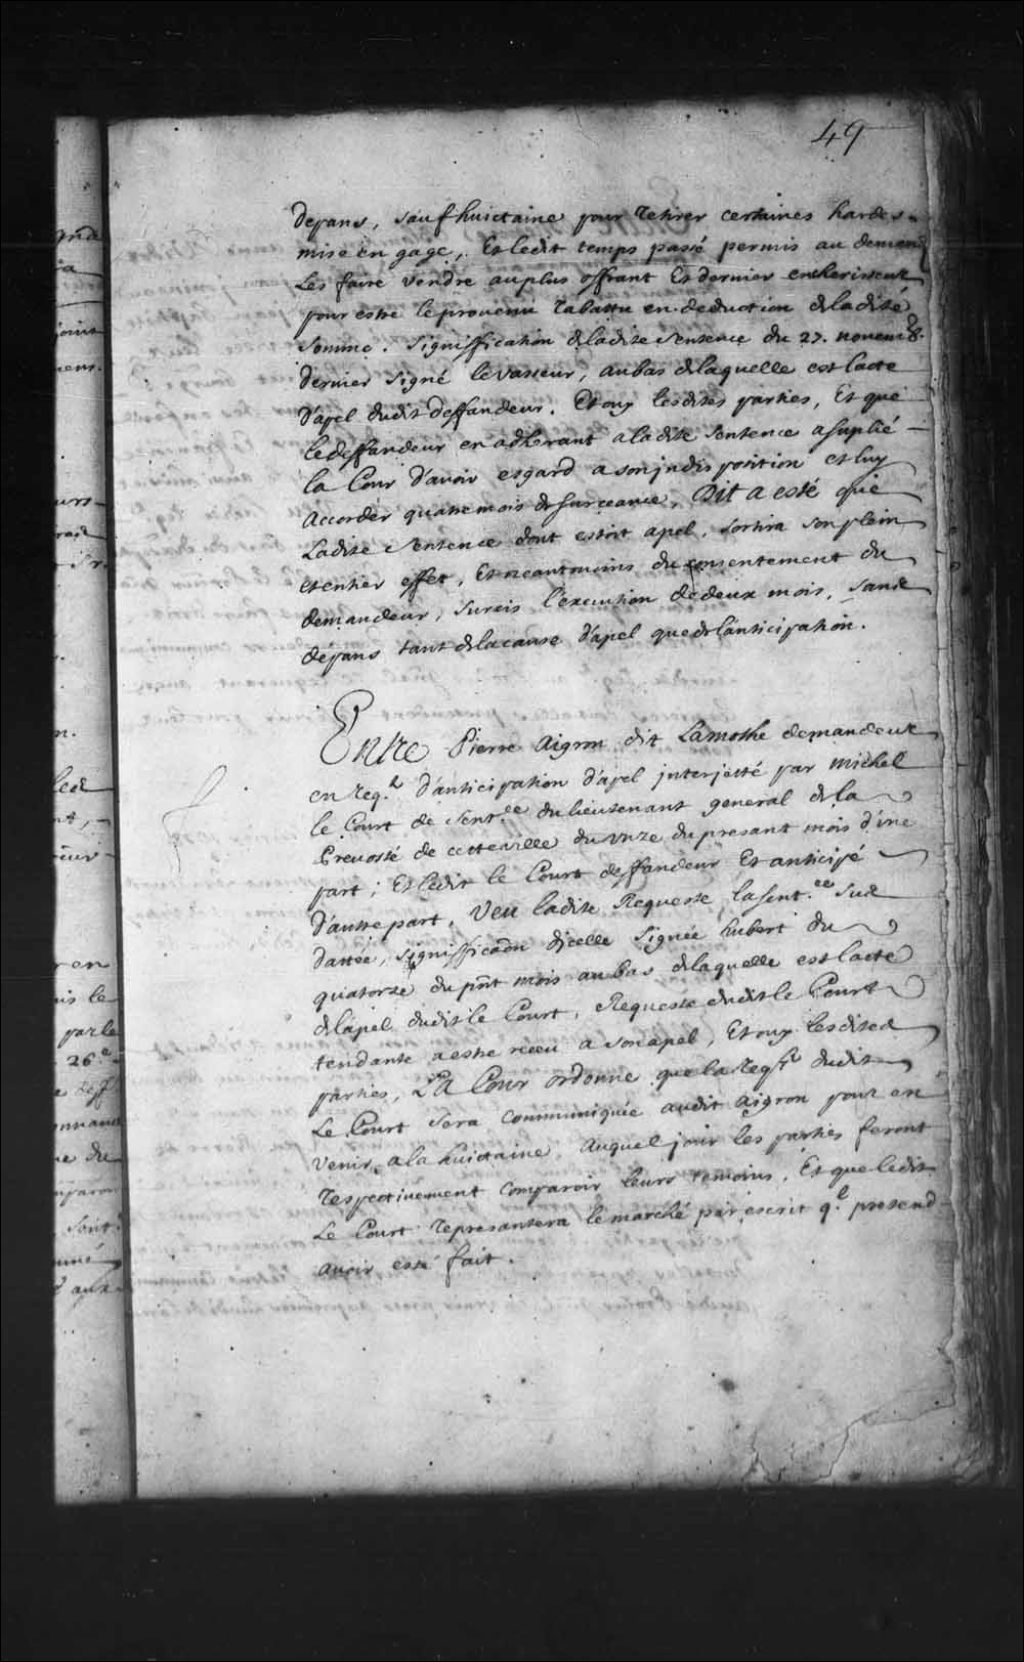 49
depans, sauf huictaine pour retirer certaines hardes
mise en gage, Et ledit temps passé permis au demand
Les faire vendre au plus offrant Et dernier encherisseur
pour estre le prouenu rabattu en deduction de ladite
somme. Signiffication de ladite sentence du 27. nouemb.
dernier signé leVasseur, au bas de laquelle est lacte
d'apel dudit deffandeur. Et ouy lesdites parties, Et que
ledeffandeur en adherant a ladite sentence a suplié
la Cour d'avoir esgard a son jndisposition et luy
accorder quatre mois de surceance, Dit a esté que
Ladite sentence dont estoit apel, sortira son plein
et entier effet, Et neantmoins du consentement du
demandeur, surcis l'execution de deux mois, sans
dépans tant de la cause d'apel que de l'anticipation.
Entre Pierre Aigron dit Lamothe demandeur
en req.te d'anticipation d'apel interjetté par michel
le Court de sent.ce du lieutenant general de la
Preuosté de cette ville du vnze du presant mois d'vne
part; Et ledit le Court deffandeur Et anticipé
d'autre part, Veu ladite Requeste, la sent.ce sus
dattée, signifficaõn d'jcelle signée hubert du
quatorze du pñt mois au bas de laquelle est lacte
de lapel dudit le Court, Requeste dudit le Court
tendante a estre receu a son apel, Et ouy lesdites
parties, LA Cour ordonne que la Req.te dudit
Le Court sera communiquée audit Aigron pour en
venir a la huictaine, Auquel jour les parties feront
respectiuement comparoir leurs temoins, Et que ledit
Le Court representera le marché par escrit q.l pretend
avoir esté fait.